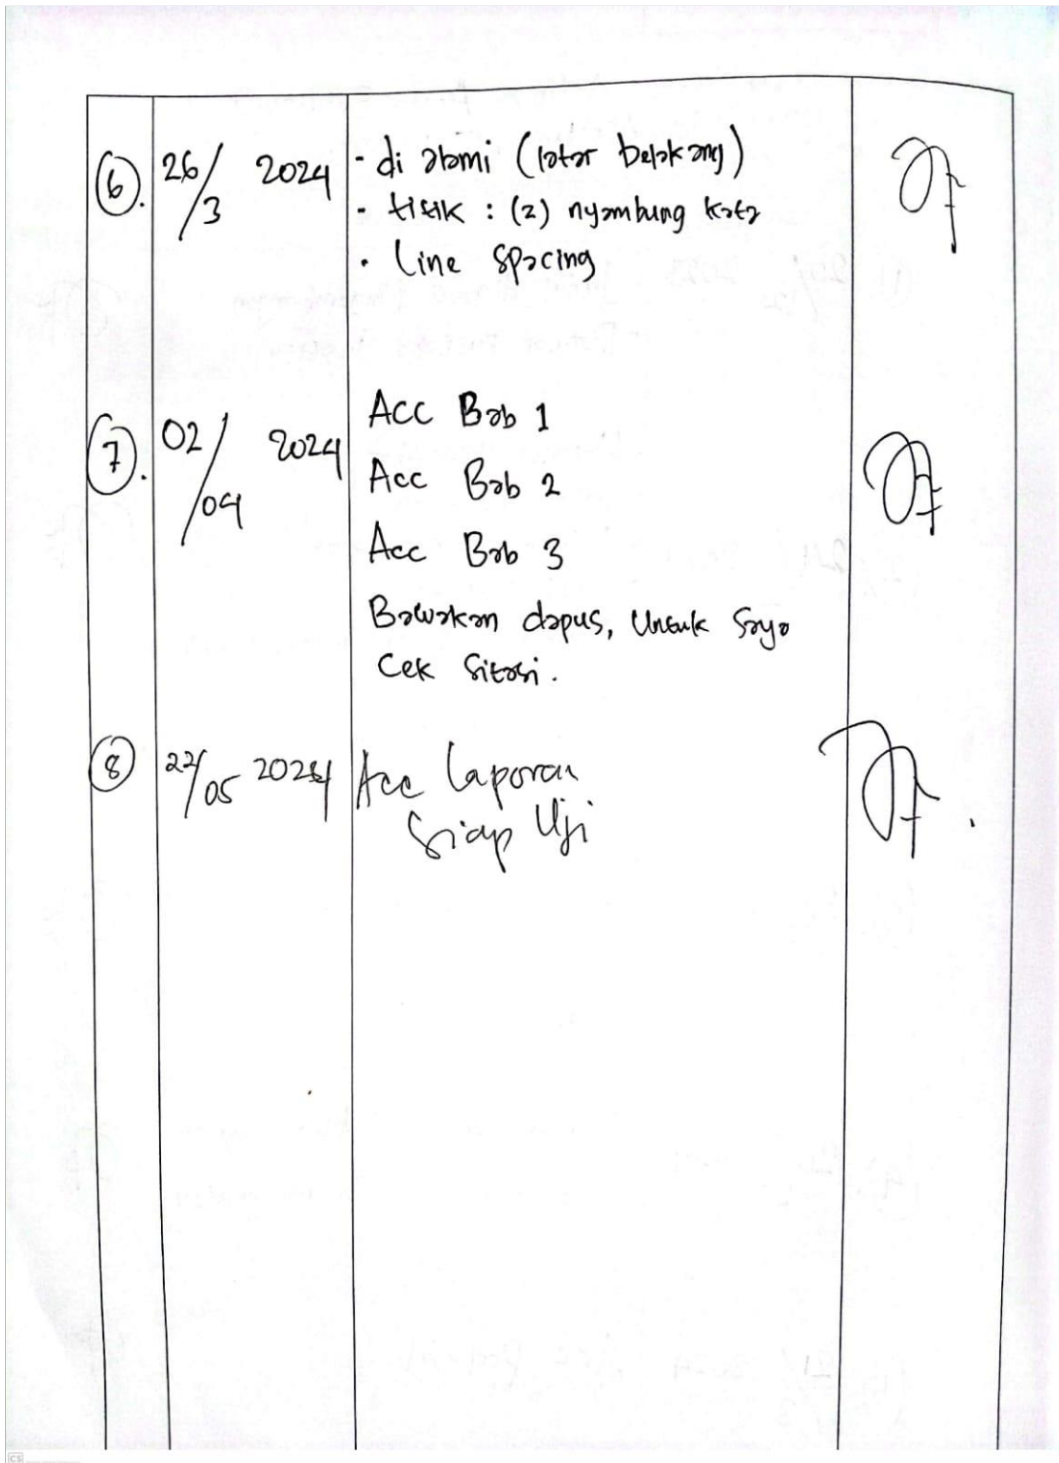 6. 26/3 2024 - di alami (latar belakang)
- titik : (2) nyambung kata
- Line Spacing
7. 02/04 2024 Acc Bab 1
Acc Bab 2
Acc Bab 3
Bawakan dapus, Untuk Saya
Cek Sitasi.
8 22/05 2024 Acc Laporan
Siap Uji
CS